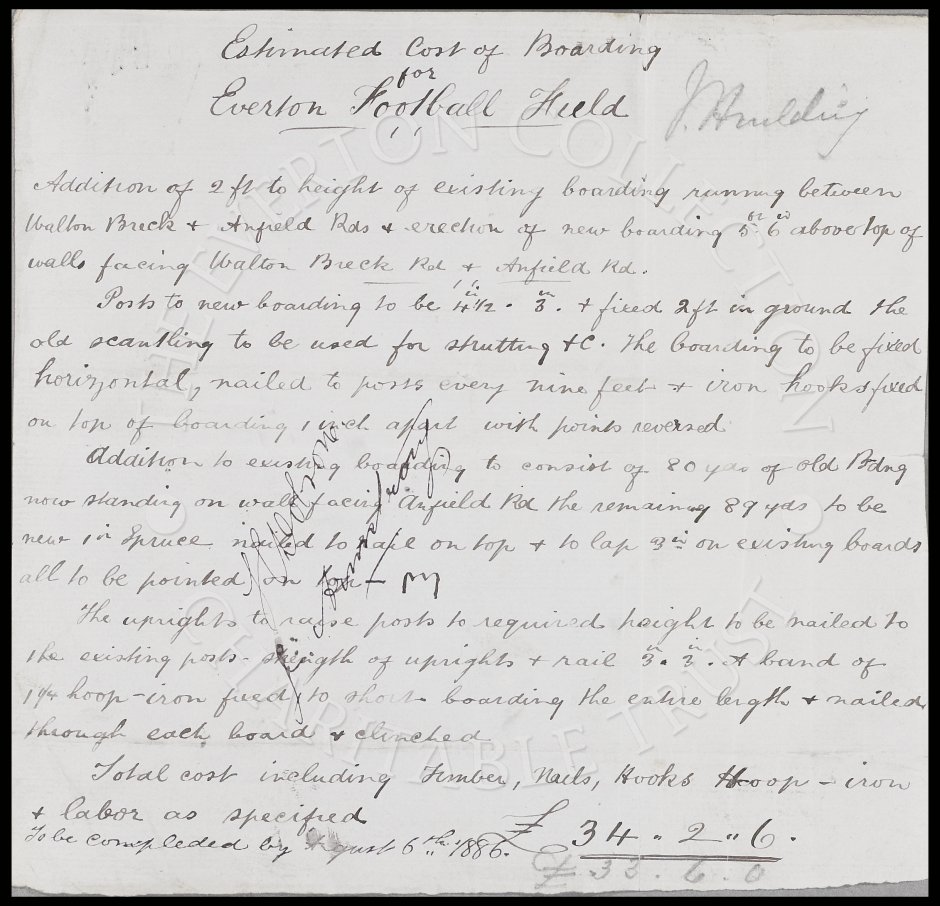 Estimated Cost of Boarding
for
Everton Football Field
Addition of 2 ft to height of existing boarding running between
Walton Breck + Anfield Rds + erection of new boarding 5 ft 6 in above top of
walls facing Walton Breck Rd + Anfield Rd.
Posts to new boarding to be 4 1/2 in . 3 in . + fixed 2 ft in ground the
old scantling to be used for strutting + C. The boarding to be fixed
horizontal, nailed to posts every nine feet + iron hooks fixed
on top of boarding 1 inch apart with points reversed
Addition to existing boarding to consist of 80 yds of old Bdng
now standing on wall facing Anfield Rd the remaining 89 yds to be
new 1 in Spruce nailed to rail on top + to lap 3 in on existing boards
all to be pointed on top
The uprights to raise posts to required height to be nailed to
the existing posts - strength of uprights + rail 3 in . 3 in . A band of
1 1/4 hoop-iron fixed to short boarding the entire length + nailed
through each board + clinched
Total cost including Timber, Nails, Hooks Hoop - iron
+ labor as specified
To be compleded by August 6th 1886.
£ 34 " 2 " 6 .
£ 33 . 6 . 0
THE EVERTON COLLECTION
CHARITABLE TRUST